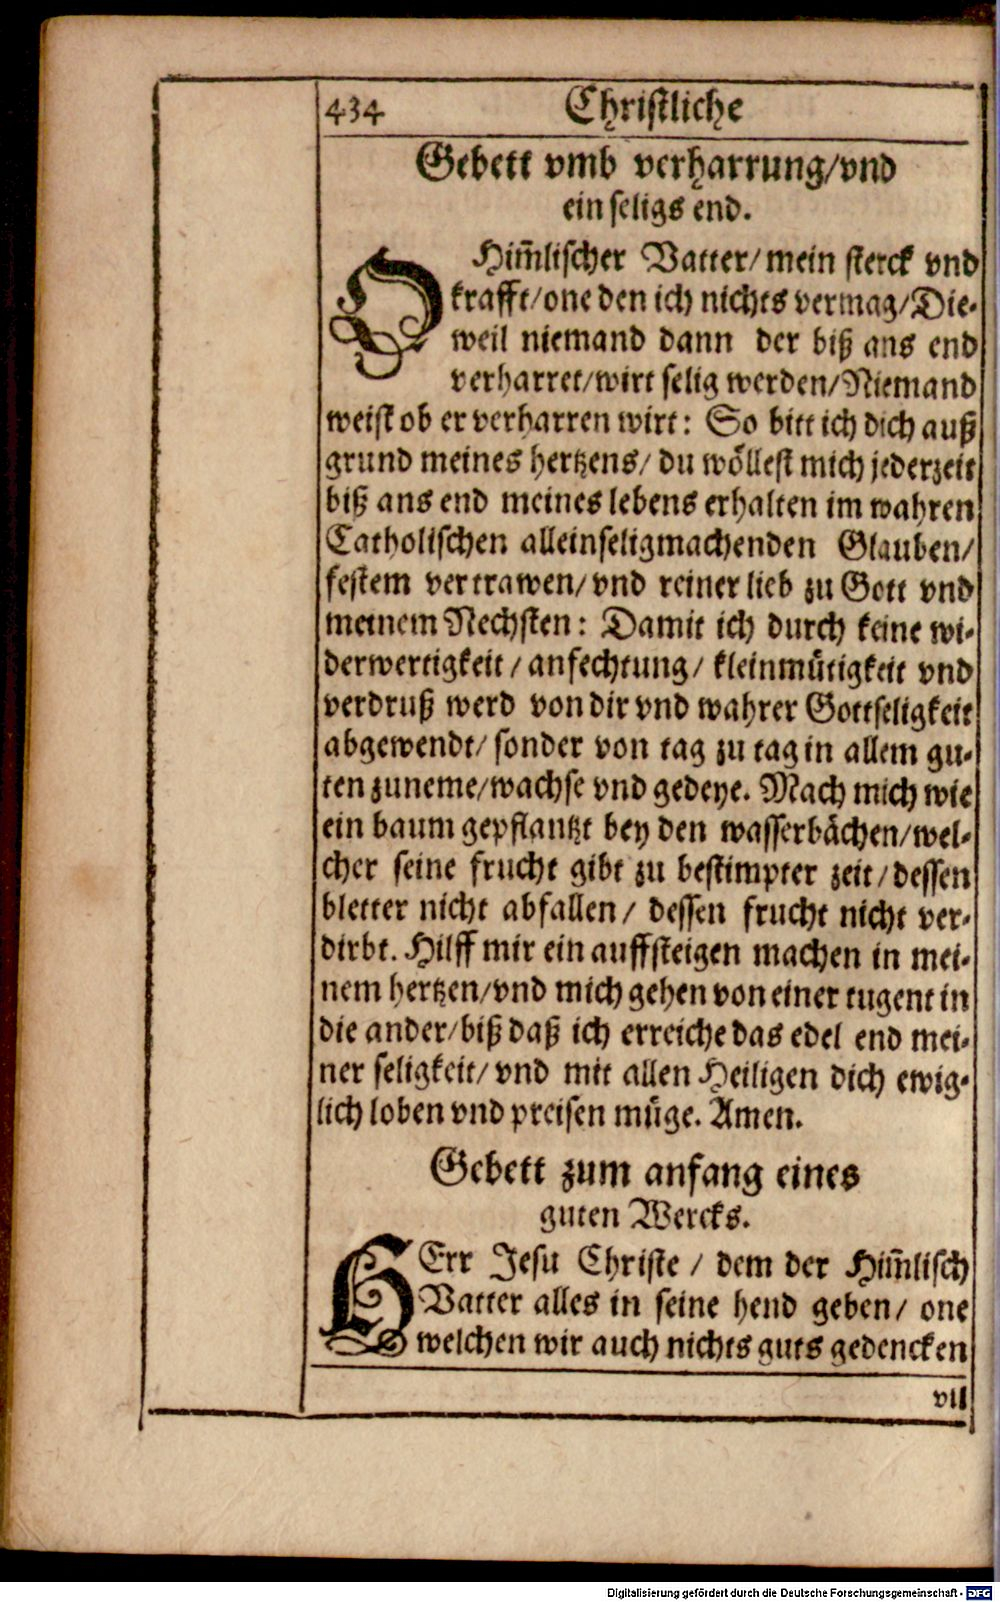 434 Christliche
Gebett vmb verharrung/vnd
ein seligs end.
O Him̃lischer Vatter/mein sterck vnd
krafft/one den ich nichts vermag/Die-
weil niemand dann der biß ans end
verharret/wirt selig werden/Niemand
weist ob er verharren wirt: So bitt ich dich auß
grund meines hertzens/ du wöllest mich jederzeit
biß ans end meines lebens erhalten im wahren
Catholischen alleinseligmachenden Glauben/
festem vertrawen/ vnd reiner lieb zu Gott vnd
meinem Nechsten: Damit ich durch keine wi-
derwertigkeit/ anfechtung/ kleinmütigkeit vnd
verdruß werd von dir vnd wahrer Gottseligkeit
abgewendt/ sonder von tag zu tag in allem gu-
ten zuneme/wachse vnd gedeye. Mach mich wie
ein baum gepflantzt bey den wasserbächen/wel-
cher seine frucht gibt zu bestimpter zeit/dessen
bletter nicht abfallen/ dessen frucht nicht ver-
dirbt. Hilff mir ein auffsteigen machen in mei-
nem hertzen/vnd mich gehen von einer tugent in
die ander/biß daß ich erreiche das edel end mei-
ner seligkeit/ vnd mit allen Heiligen dich ewig-
lich loben vnd preisen müge. Amen.
Gebett zum anfang eines
guten Wercks.
HErr Jesu Christe / dem der Him̃lisch
Vatter alles in seine hend geben/ one
welchen wir auch nichts guts gedencken
vil
Digitalisierung gefördert durch die Deutsche Forschungsgemeinschaft - DFG